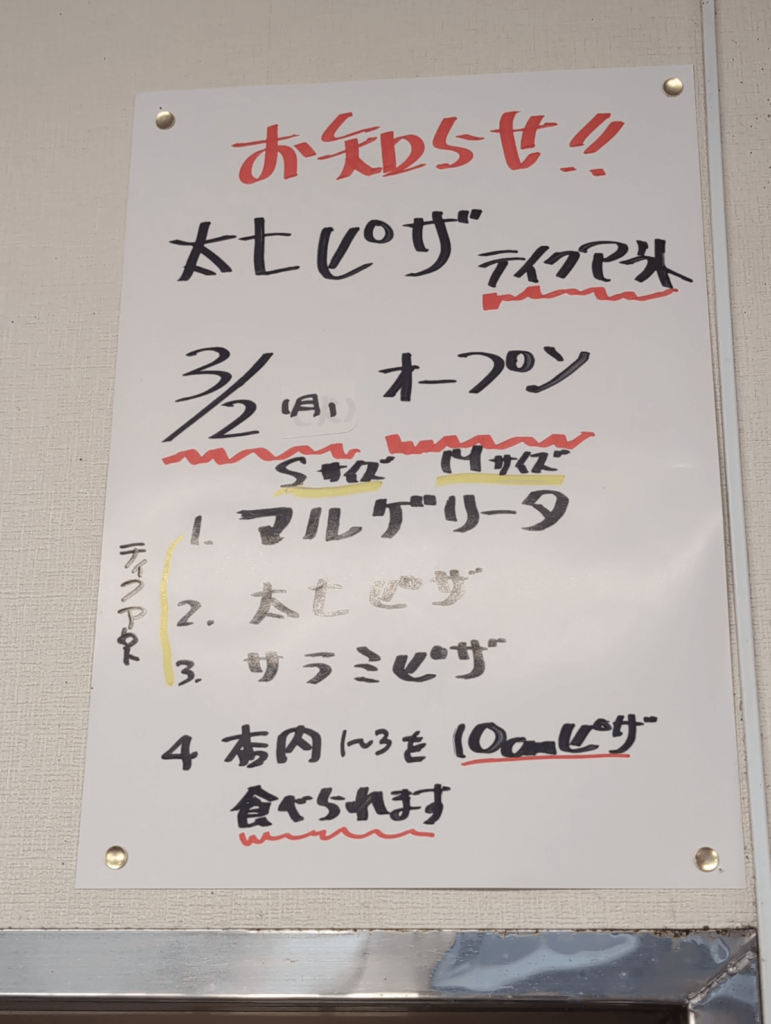 お知らせ!!
太七ピザ テイクアウト
3/2(月) オープン
Sサイズ Mサイズ
1. マルゲリータ
2. 太七ピザ
3. サラミピザ
テイクアウト
4 店内1〜3を10cmピザ
食べられます